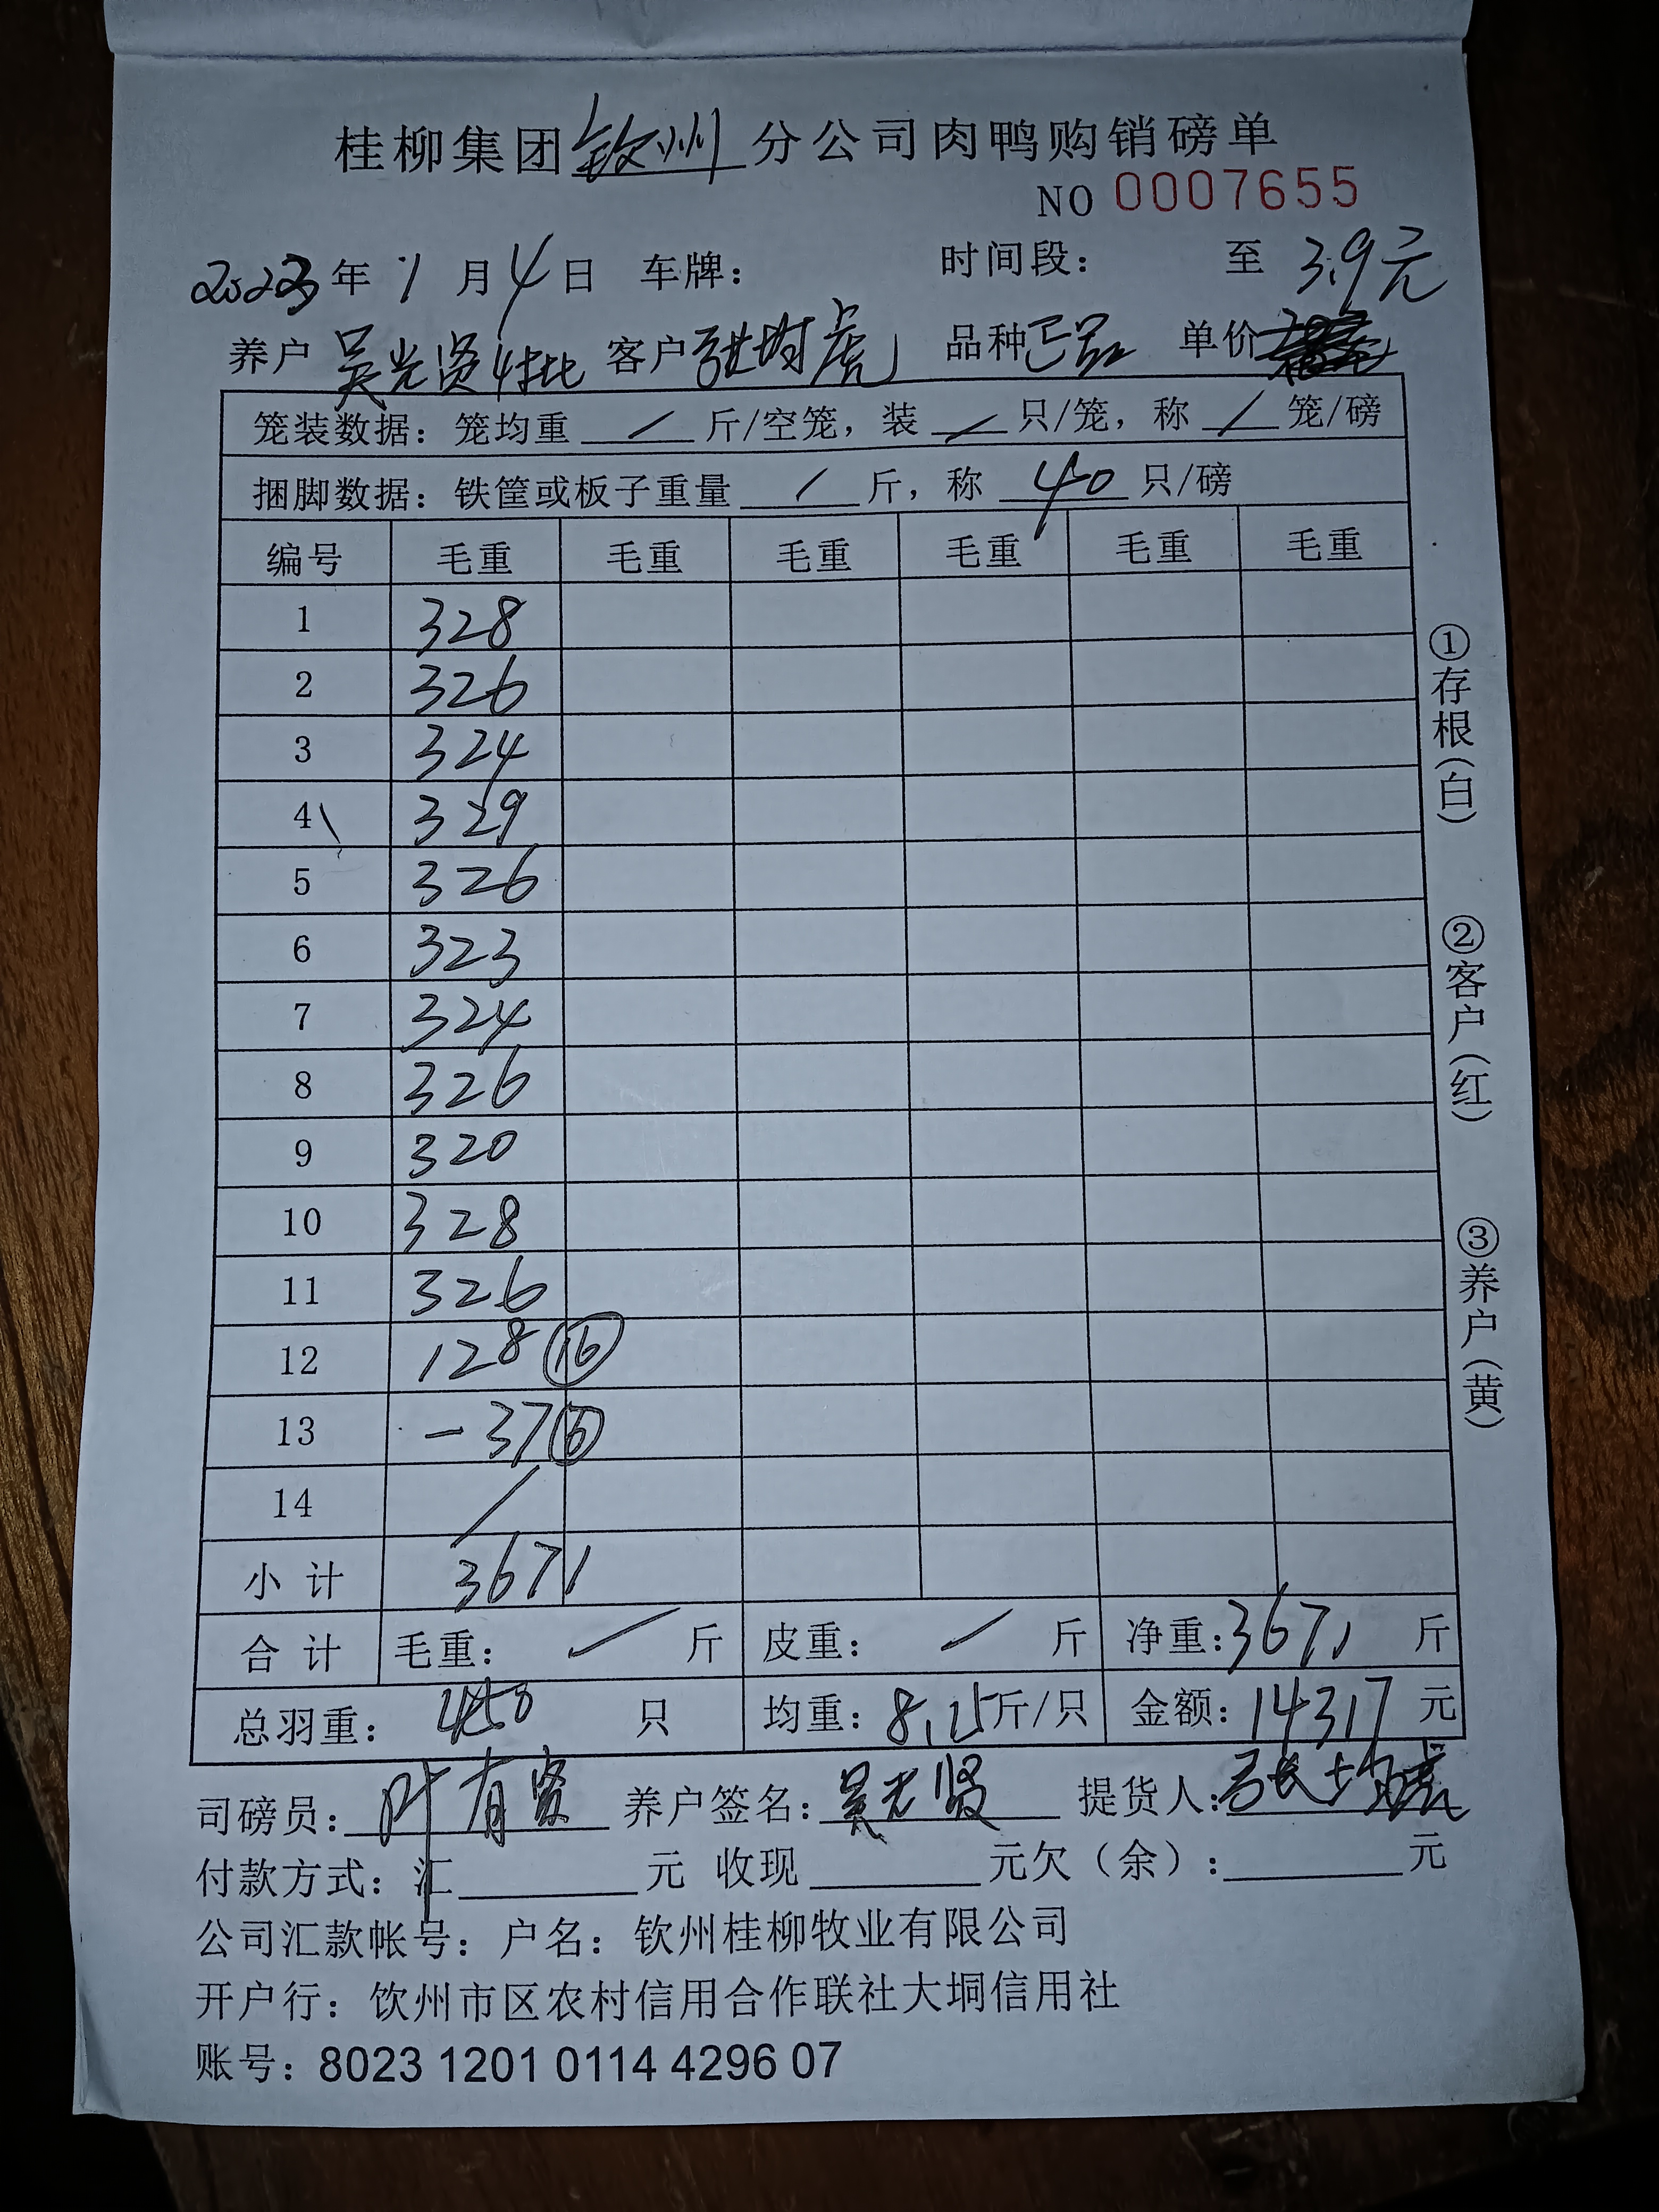 桂柳集团钦州分公司肉鸭购销磅单
NO 0007655
2023年1月4日 车牌： 时间段： 至 3.9元
养户 吴光贤4批 客户 张均虎 品种 单价
笼装数据：笼均重 / 斤/空笼，装 / 只/笼，称 / 笼/磅
捆脚数据：铁筐或板子重量 / 斤，称 40 只/磅
编号 毛重 毛重 毛重 毛重 毛重 毛重
1 328
2 326
3 324
4 329
5 326
6 323
7 324
8 326
9 320
10 328
11 326
12 128 ⑯
13 -37 ⑥
14 /
小计 3671
合计 毛重： / 斤 皮重： / 斤 净重：3671 斤
总羽重： 450 只 均重：8.15斤/只 金额：14317 元
司磅员：叶有贤 养户签名：吴光贤 提货人：张均虎
付款方式：汇 元 收现 元欠（余）： 元
公司汇款帐号：户名：钦州桂柳牧业有限公司
开户行：钦州市区农村信用合作联社大垌信用社
账号：8023 1201 0114 4296 07
①存根（白）
②客户（红）
③养户（黄）